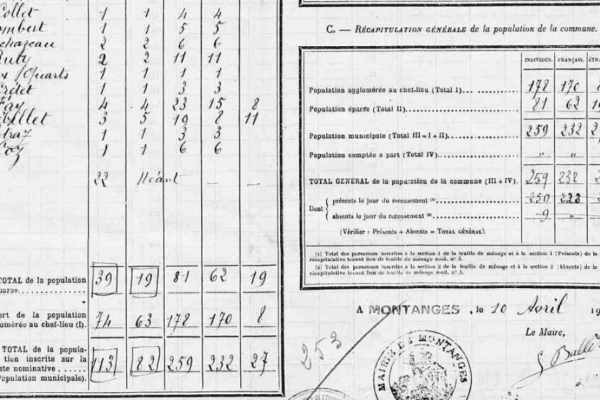 Collet 1 1 4 4
1 1 5 5
2 2 6 6
2 2 11 11
1 1 1 1
1 1 3 3
4 4 23 15 8
3 5 19 8 11
1 1 3 3
1 1 6 6
22 Néant — —
TOTAL de la population 39 19 81 62 19
éparse
port de la population
glomérée au chef-lieu (I). 74 63 178 170 8
TOTAL de la popula-
tion inscrite sur la 113 82 259 232 27
ste nominative
Population municipale).
C. — RÉCAPITULATION GÉNÉRALE de la population de la commune.
INDIVIDUS. FRANÇAIS. ÉTR
Population aggloméré au chef-lieu (Total I) 178 170 8
Population éparse (Total II) 81 62 19
Population municipale (Total III = I + II) 259 232 2
Population comptée à part (Total IV) " "
TOTAL GÉNÉRAL de la population de la commune (III + IV). 259 232 2
Dont
présents le jour du recensement (1) 250 223
absents le jour du recensement (2) 9 "
(Vérifier : Présents + Absents = TOTAL GÉNÉRAL)
(1) Total des personnes inscrites à la section 1 de la feuille de ménage et à la section 1 (Présents) de la
récapitulative tenant lieu de feuille de ménage mod. n° 3.
(2) Total des personnes inscrites à la section 2 de la feuille de ménage et à la section 2 (Absents) de la
récapitulative tenant lieu de feuille de ménage mod. n° 3.
A MONTANGES, le 10 Avril 19
Le Maire,
253
MAIRIE DE MONTANGES